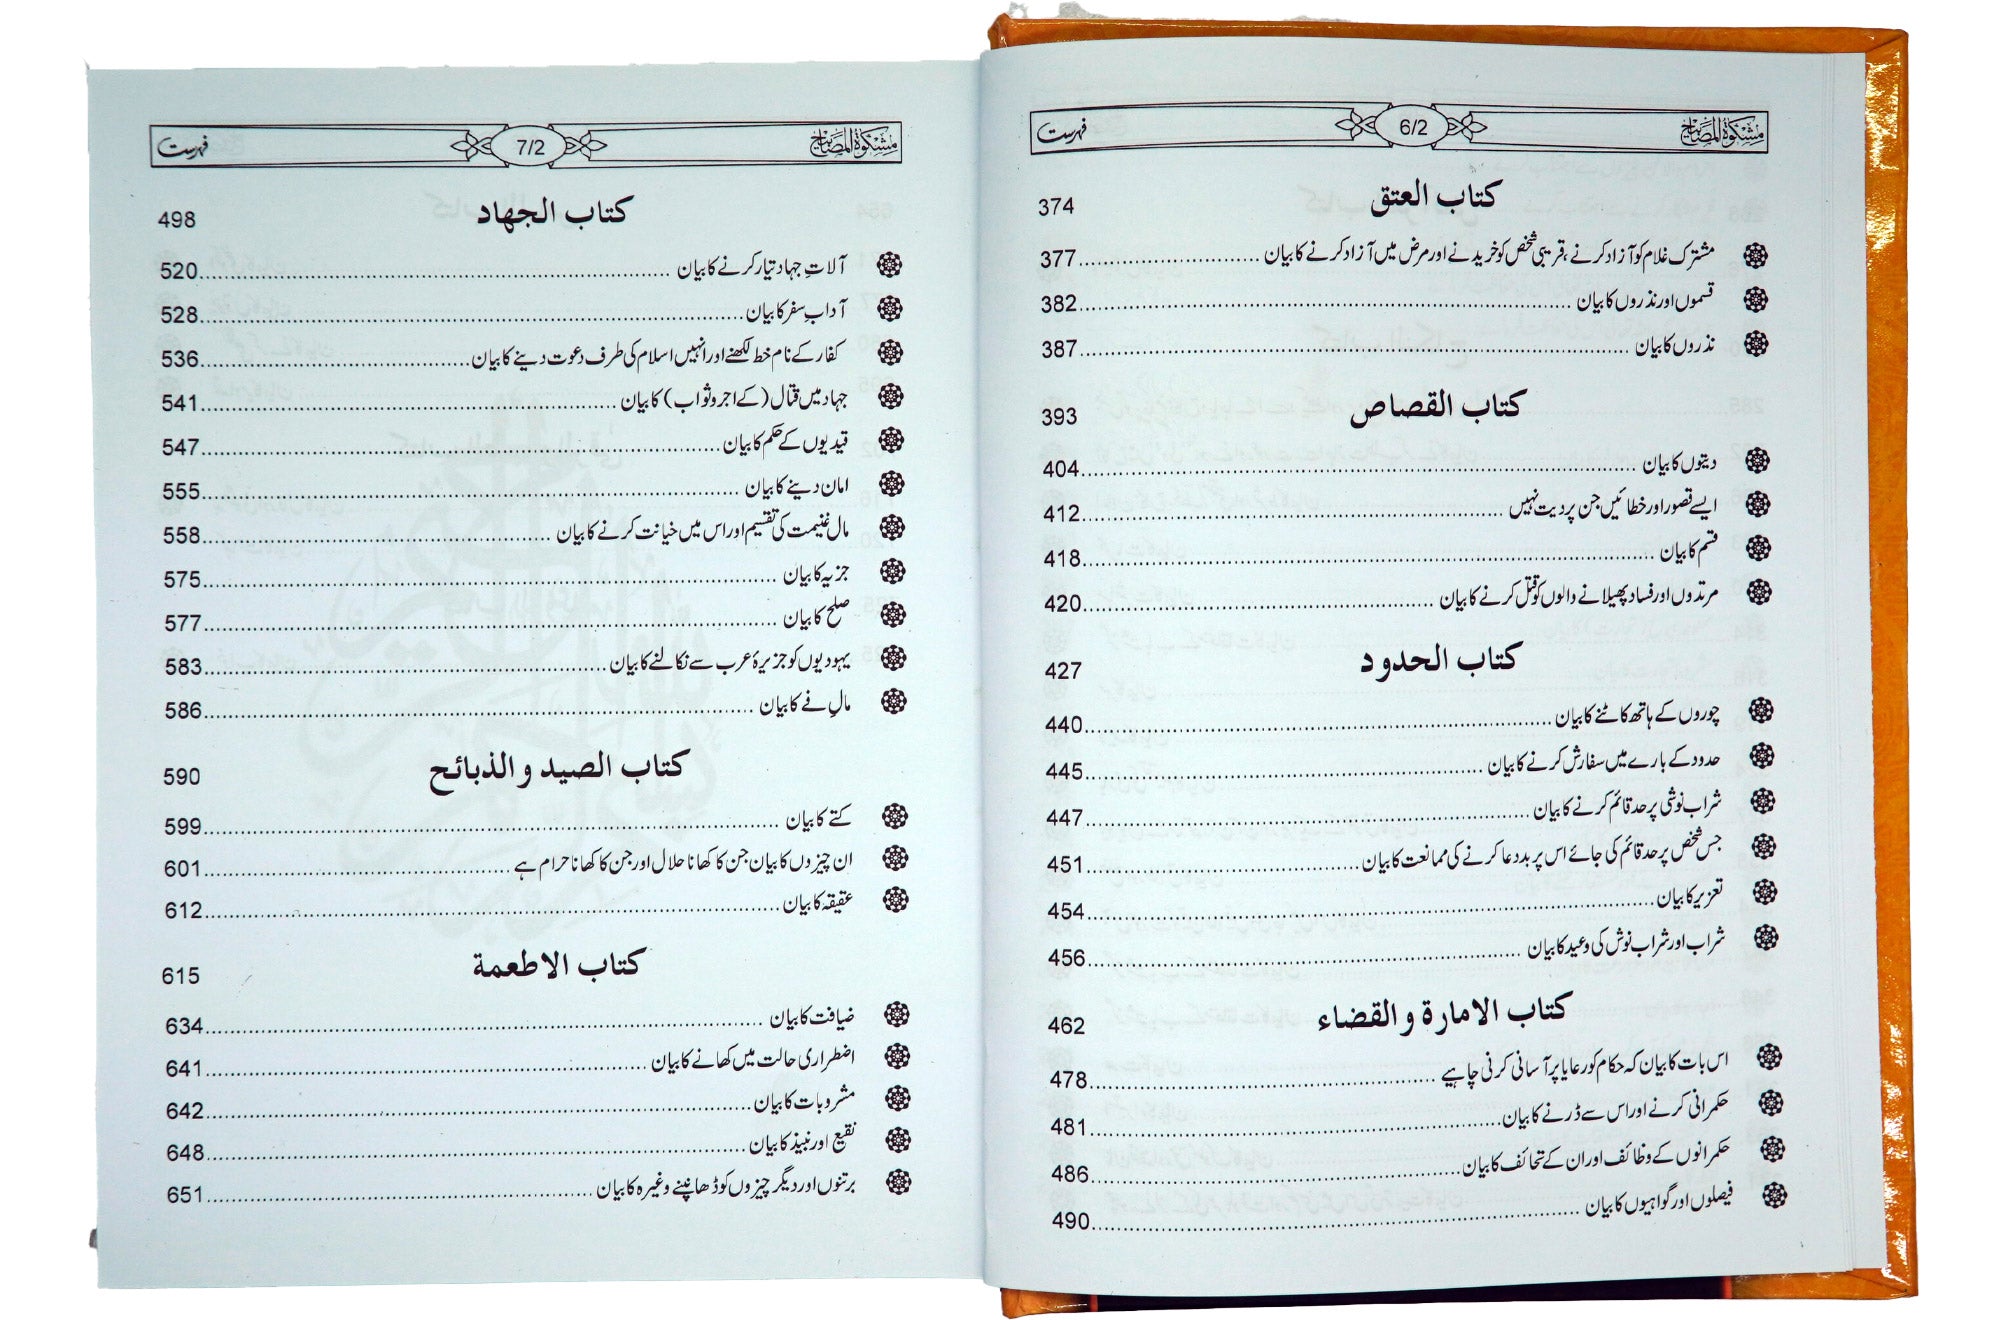 مشكوة المصابيح 6/2 فہرست
كتاب العتق 374
مشترک غلام کو آزاد کرنے، قریبی شخص کو خریدنے اور مرض میں آزاد کرنے کا بیان 377
قسموں اور نذروں کا بیان 382
نذروں کا بیان 387
كتاب القصاص 393
دیتوں کا بیان 404
ایسے قصور اور خطائیں جن پر دیت نہیں 412
قسم کا بیان 418
مرتدوں اور فساد پھیلانے والوں کو قتل کرنے کا بیان 420
كتاب الحدود 427
چوروں کے ہاتھ کاٹنے کا بیان 440
حدود کے بارے میں سفارش کرنے کا بیان 445
شراب نوشی پر حد قائم کرنے کا بیان 447
جس شخص پر حد قائم کی جائے اس پر بددعا کرنے کی ممانعت کا بیان 451
تعزیر کا بیان 454
شراب اور شراب نوش کی وعید کا بیان 456
كتاب الامارة والقضاء 462
اس بات کا بیان کہ حکام کو رعایا پر آسانی کرنی چاہیے 478
حکمرانی کرنے اور اس سے ڈرنے کا بیان 481
حکمرانوں کے وظائف اور ان کے تحائف کا بیان 486
فیصلوں اور گواہیوں کا بیان 490
مشكوة المصابيح 7/2 فہرست
كتاب الجهاد 498
آلاتِ جہاد تیار کرنے کا بیان 520
آدابِ سفر کا بیان 528
کفار کے نام خط لکھنے اور انہیں اسلام کی طرف دعوت دینے کا بیان 536
جہاد میں قتال (کے اجر و ثواب) کا بیان 541
قیدیوں کے حکم کا بیان 547
امان دینے کا بیان 555
مال غنیمت کی تقسیم اور اس میں خیانت کرنے کا بیان 558
جزیہ کا بیان 575
صلح کا بیان 577
یہودیوں کو جزیرۂ عرب سے نکالنے کا بیان 583
مالِ فے کا بیان 586
كتاب الصيد والذبائح 590
کتے کا بیان 599
ان چیزوں کا بیان جن کا کھانا حلال اور جن کا کھانا حرام ہے 601
عقیقہ کا بیان 612
كتاب الاطعمة 615
ضیافت کا بیان 634
اضطراری حالت میں کھانے کا بیان 641
مشروبات کا بیان 642
نقیع اور نبیذ کا بیان 648
برتنوں اور دیگر چیزوں کو ڈھانپنے وغیرہ کا بیان 651